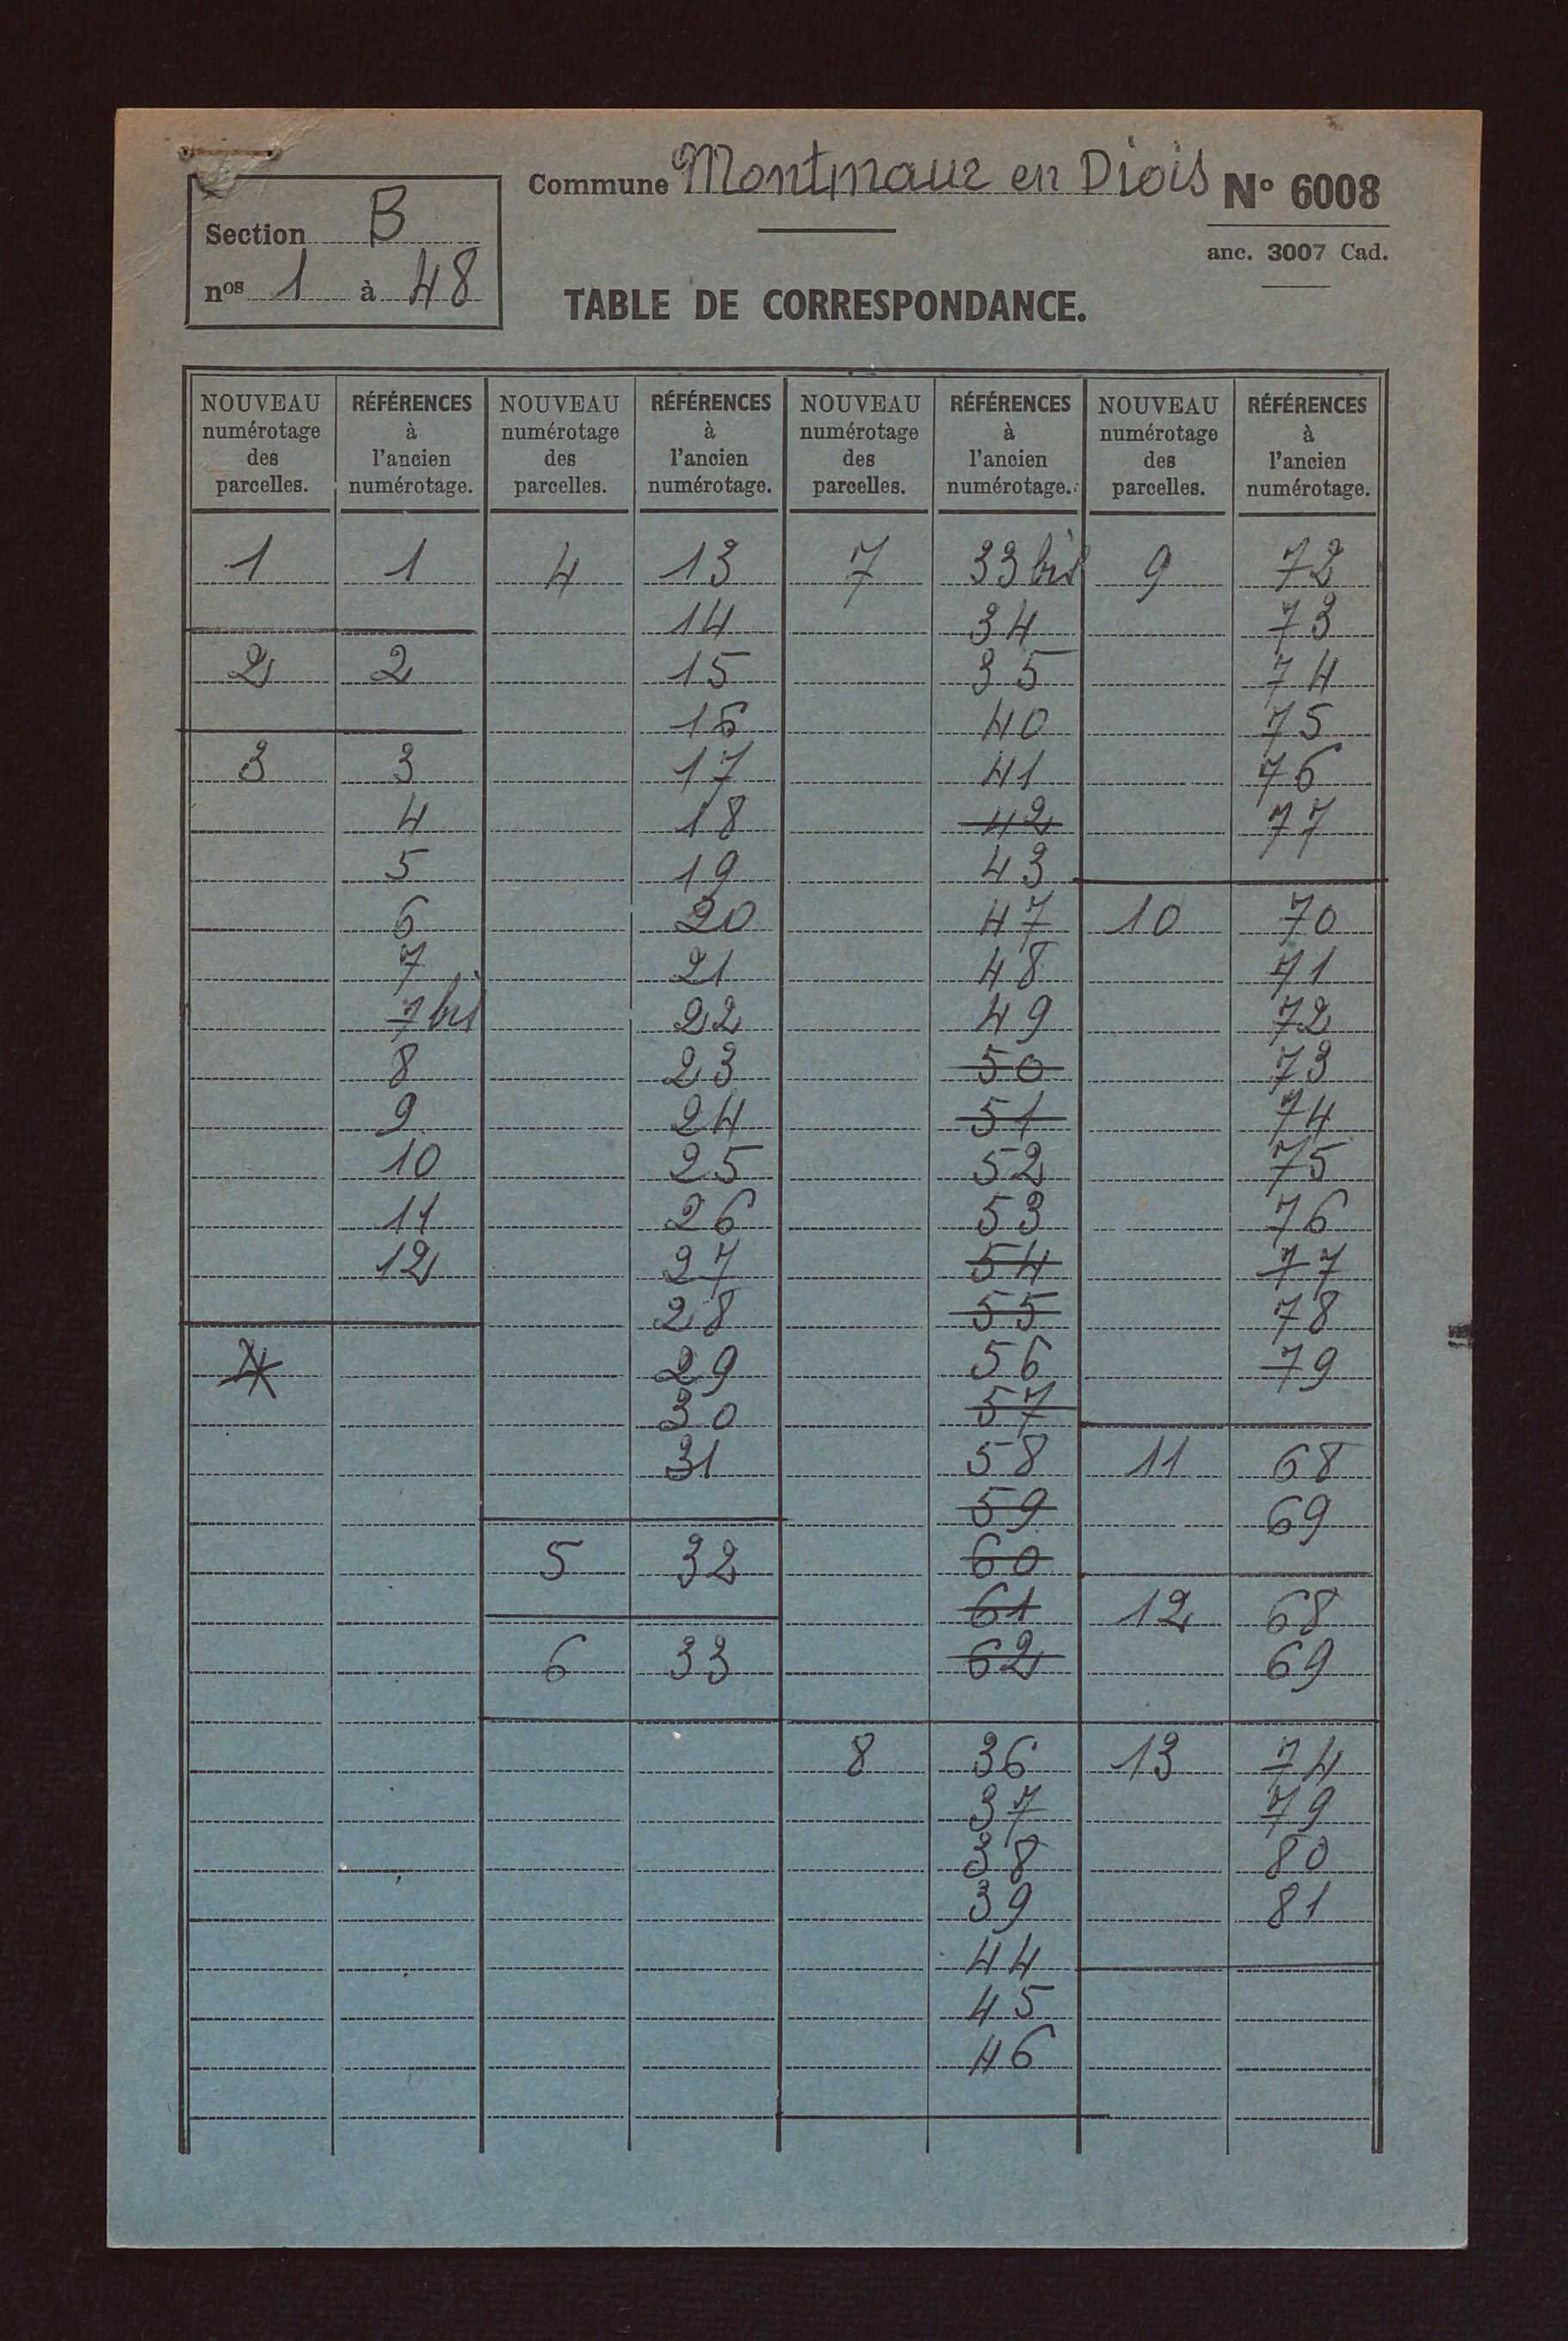 Commune Montmaur en Diois N° 6008
anc. 3007 Cad.
Section B
nos 1 à 48
TABLE DE CORRESPONDANCE.
NOUVEAU RÉFÉRENCES NOUVEAU RÉFÉRENCES NOUVEAU RÉFÉRENCES NOUVEAU RÉFÉRENCES
numérotage à numérotage à numérotage à numérotage à
des l'ancien des l'ancien des l'ancien des l'ancien
parcelles. numérotage. parcelles. numérotage. parcelles. numérotage. parcelles. numérotage.
1 1 4 13 7 33 bis 9 72
14 34 73
2 2 15 35 74
16 40 75
3 3 17 41 76
4 18 42 77
5 19 43
6 20 47 10 70
7 21 48 71
7 bis 22 49 72
8 23 50 73
9 24 51 74
10 25 52 75
11 26 53 76
12 27 54 77
28 55 78
4 29 56 79
30 57
31 58 11 68
59 69
5 32 60
61 12 68
6 33 62 69
8 36 13 74
37 79
38 80
39 81
44
45
46